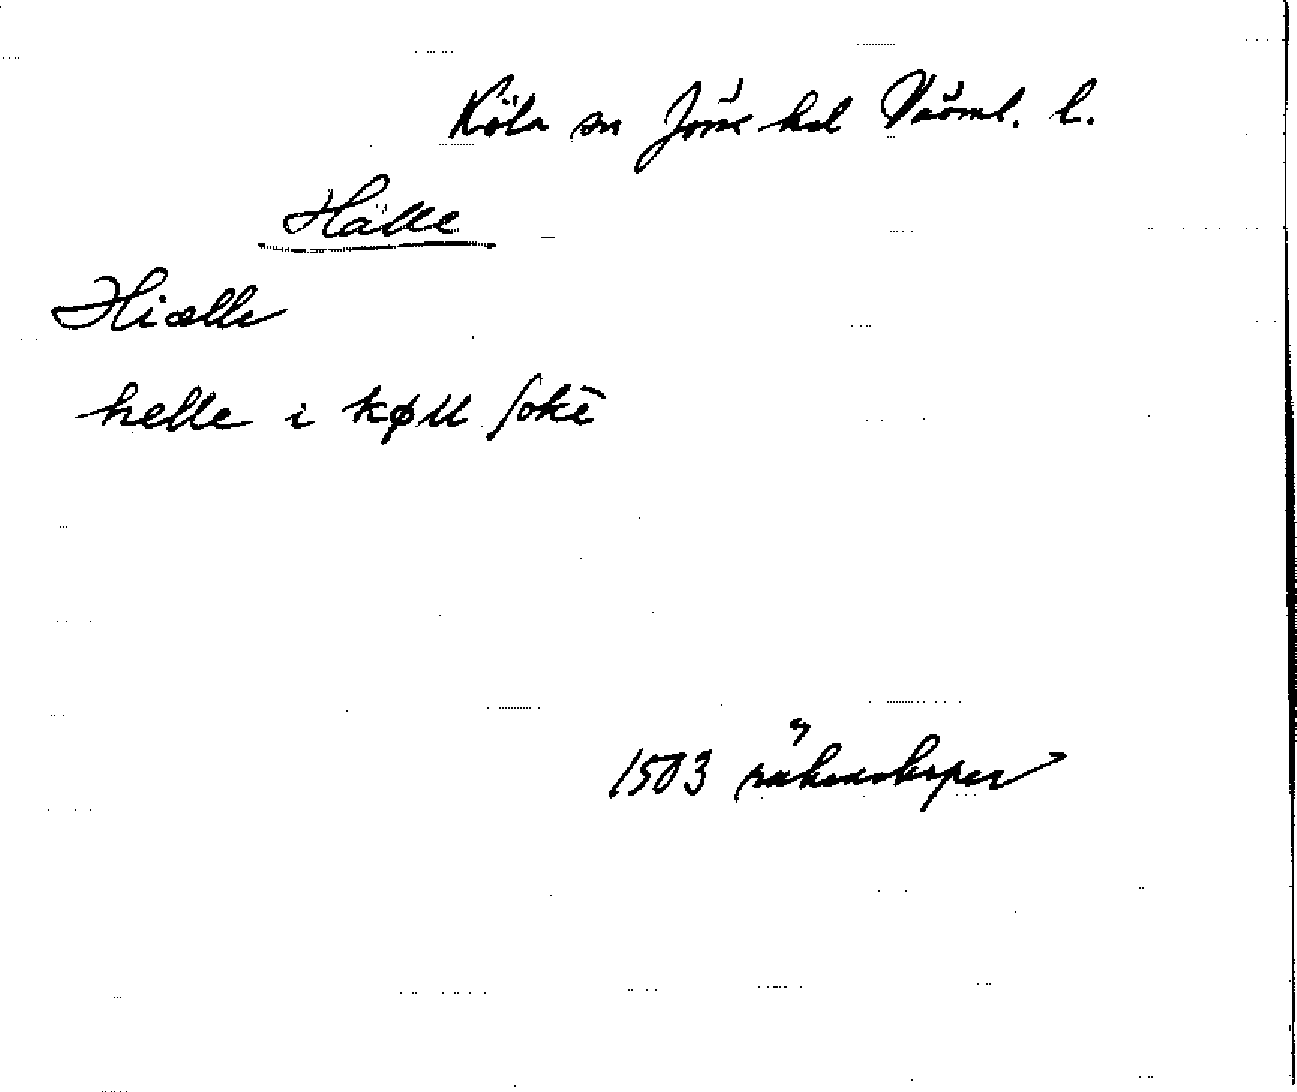 Köla sn Jösse hd Värml. l.
Hälle
Hiælle
helle i køll sokē
1503 räkenskaper